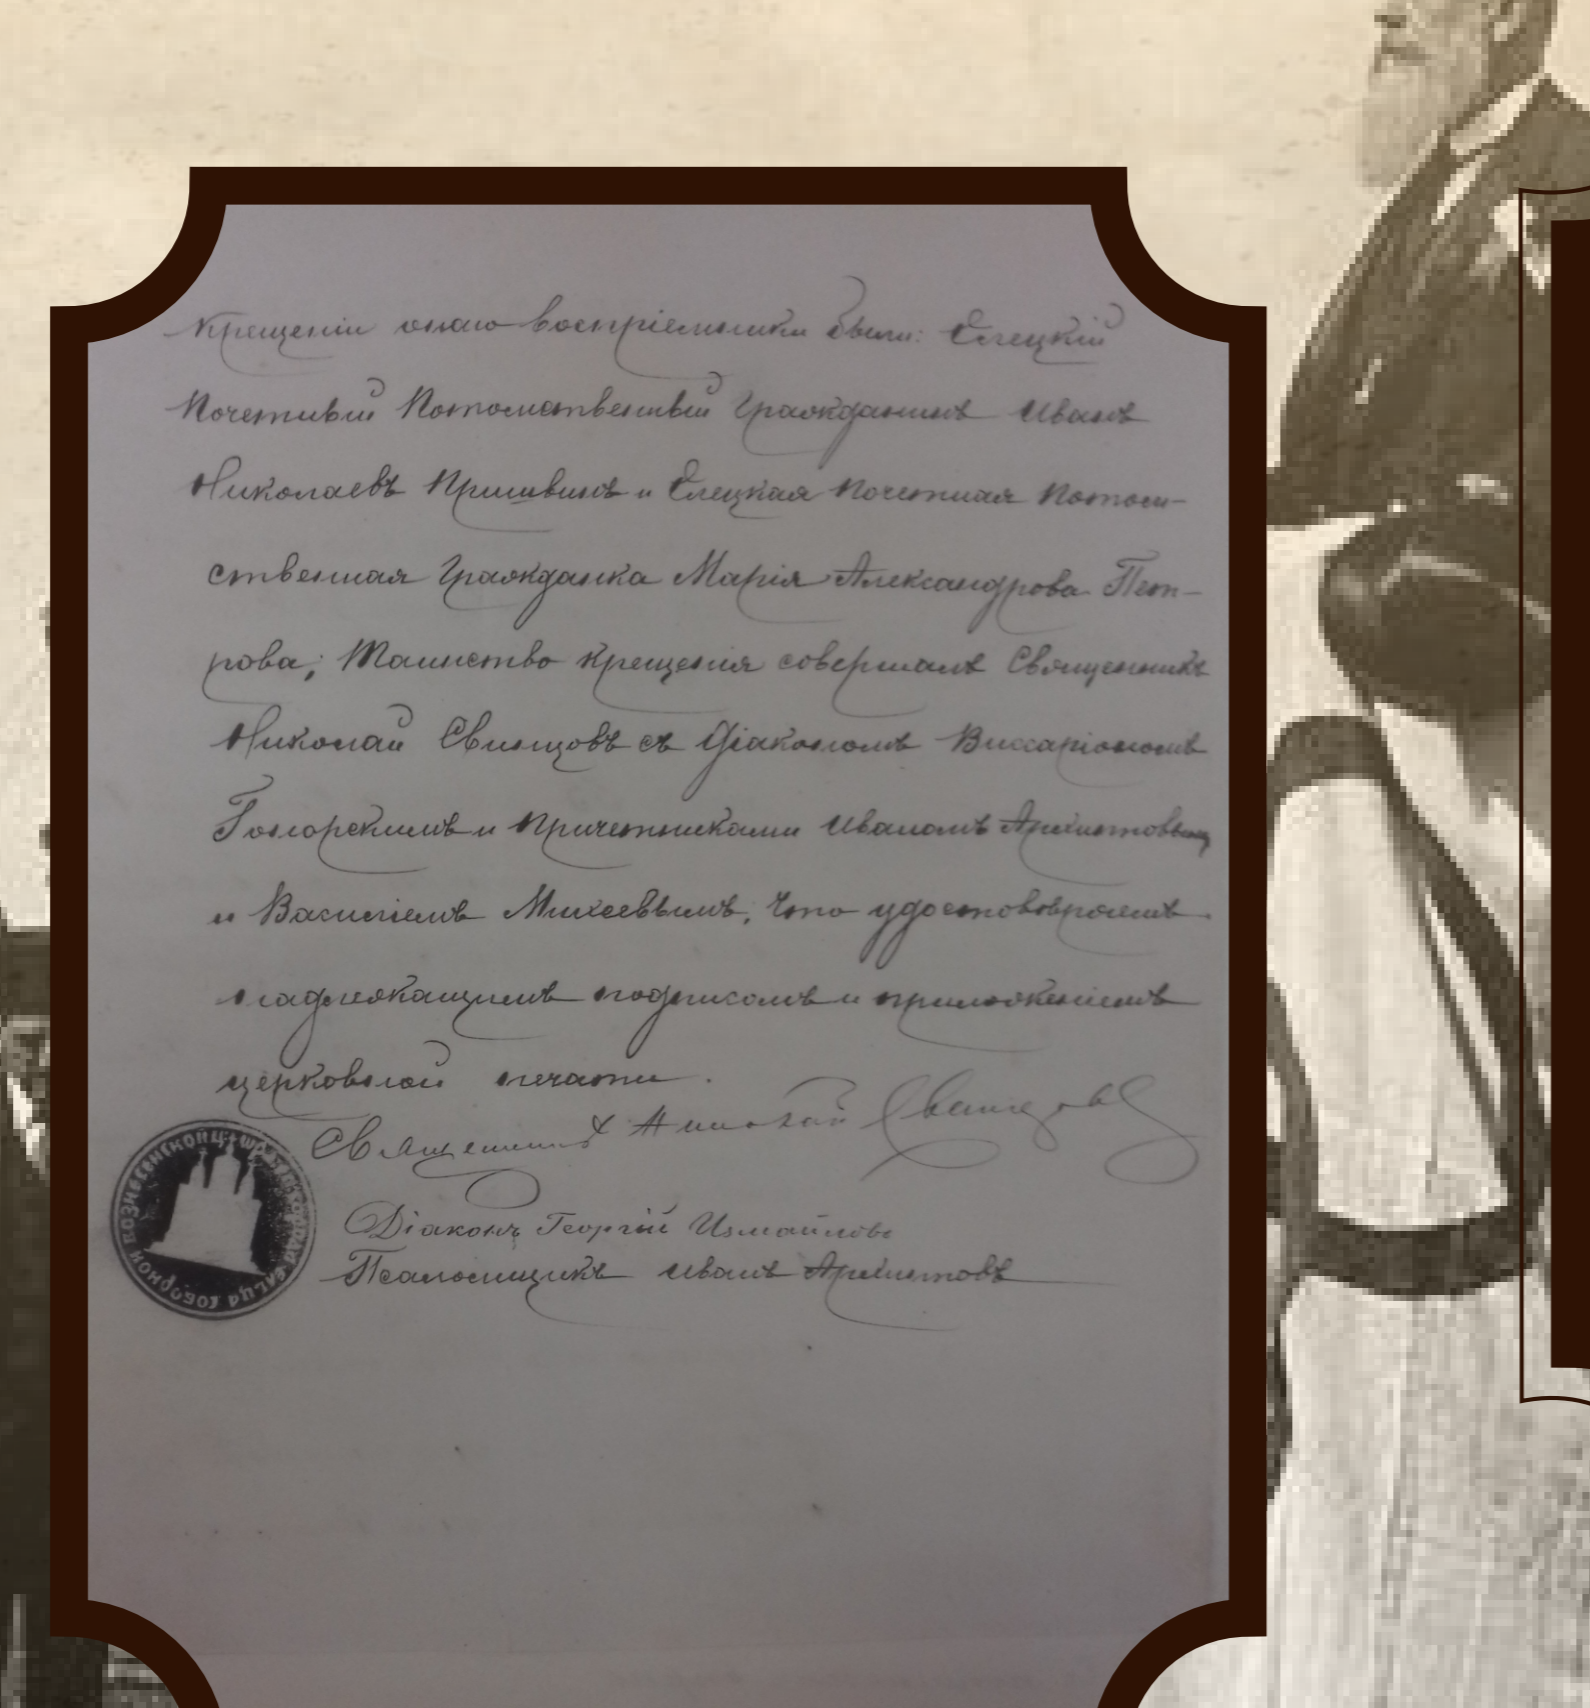 Крещеніи онаго воспріемники были: Елецкій
Почетный Потомственный Гражданинъ Иванъ
Николаевъ Пришвинъ и Елецкая Почетная Потом-
ственная Гражданка Марія Александрова Пет-
рова; Таинство крещенія совершалъ Священникъ
Николай Свинцовъ съ Діакономъ Виссаріономъ
и Причетниками Иваномъ
и Василіемъ Михеевымъ, Что удостовѣряемъ
надлежащимъ подписомъ и приложеніемъ
церковной печати.
Священникъ Николай Свинцовъ
Діаконъ Георгій Измайловъ
Псаломщикъ Иванъ
ЕЛЬЦА СОБОРНОЙ ВОЗНЕСЕНСКОЙ